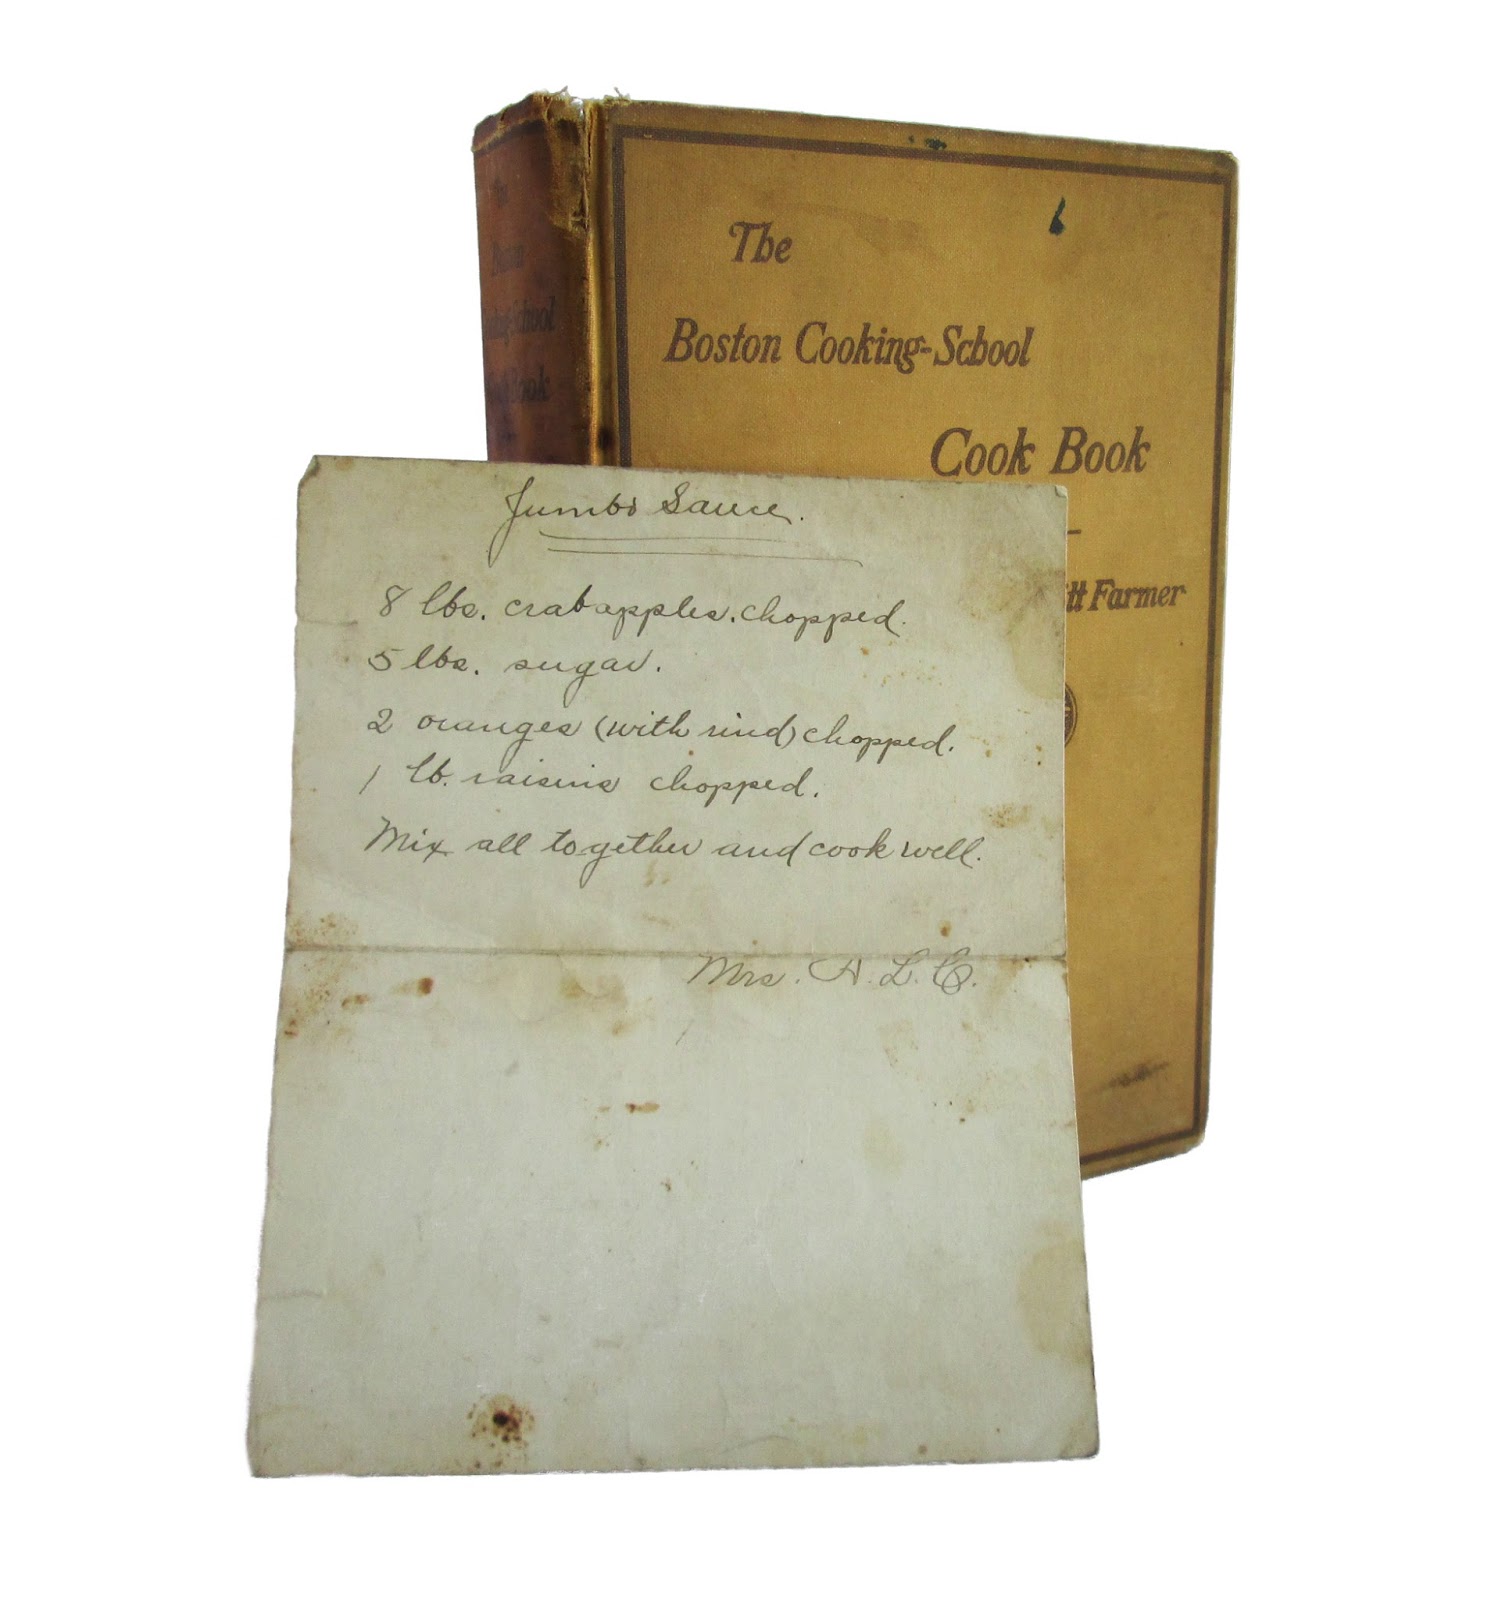 The
Boston Cooking-School
Cook Book
tt Farmer
The
Boston
School
Book
Jumbo Sauce.
8 lbs. crab apples. chopped.
5 lbs. sugar.
2 oranges (with rind) chopped.
1 lb. raisins chopped.
Mix all together and cook well.
Mrs. H. L. C.